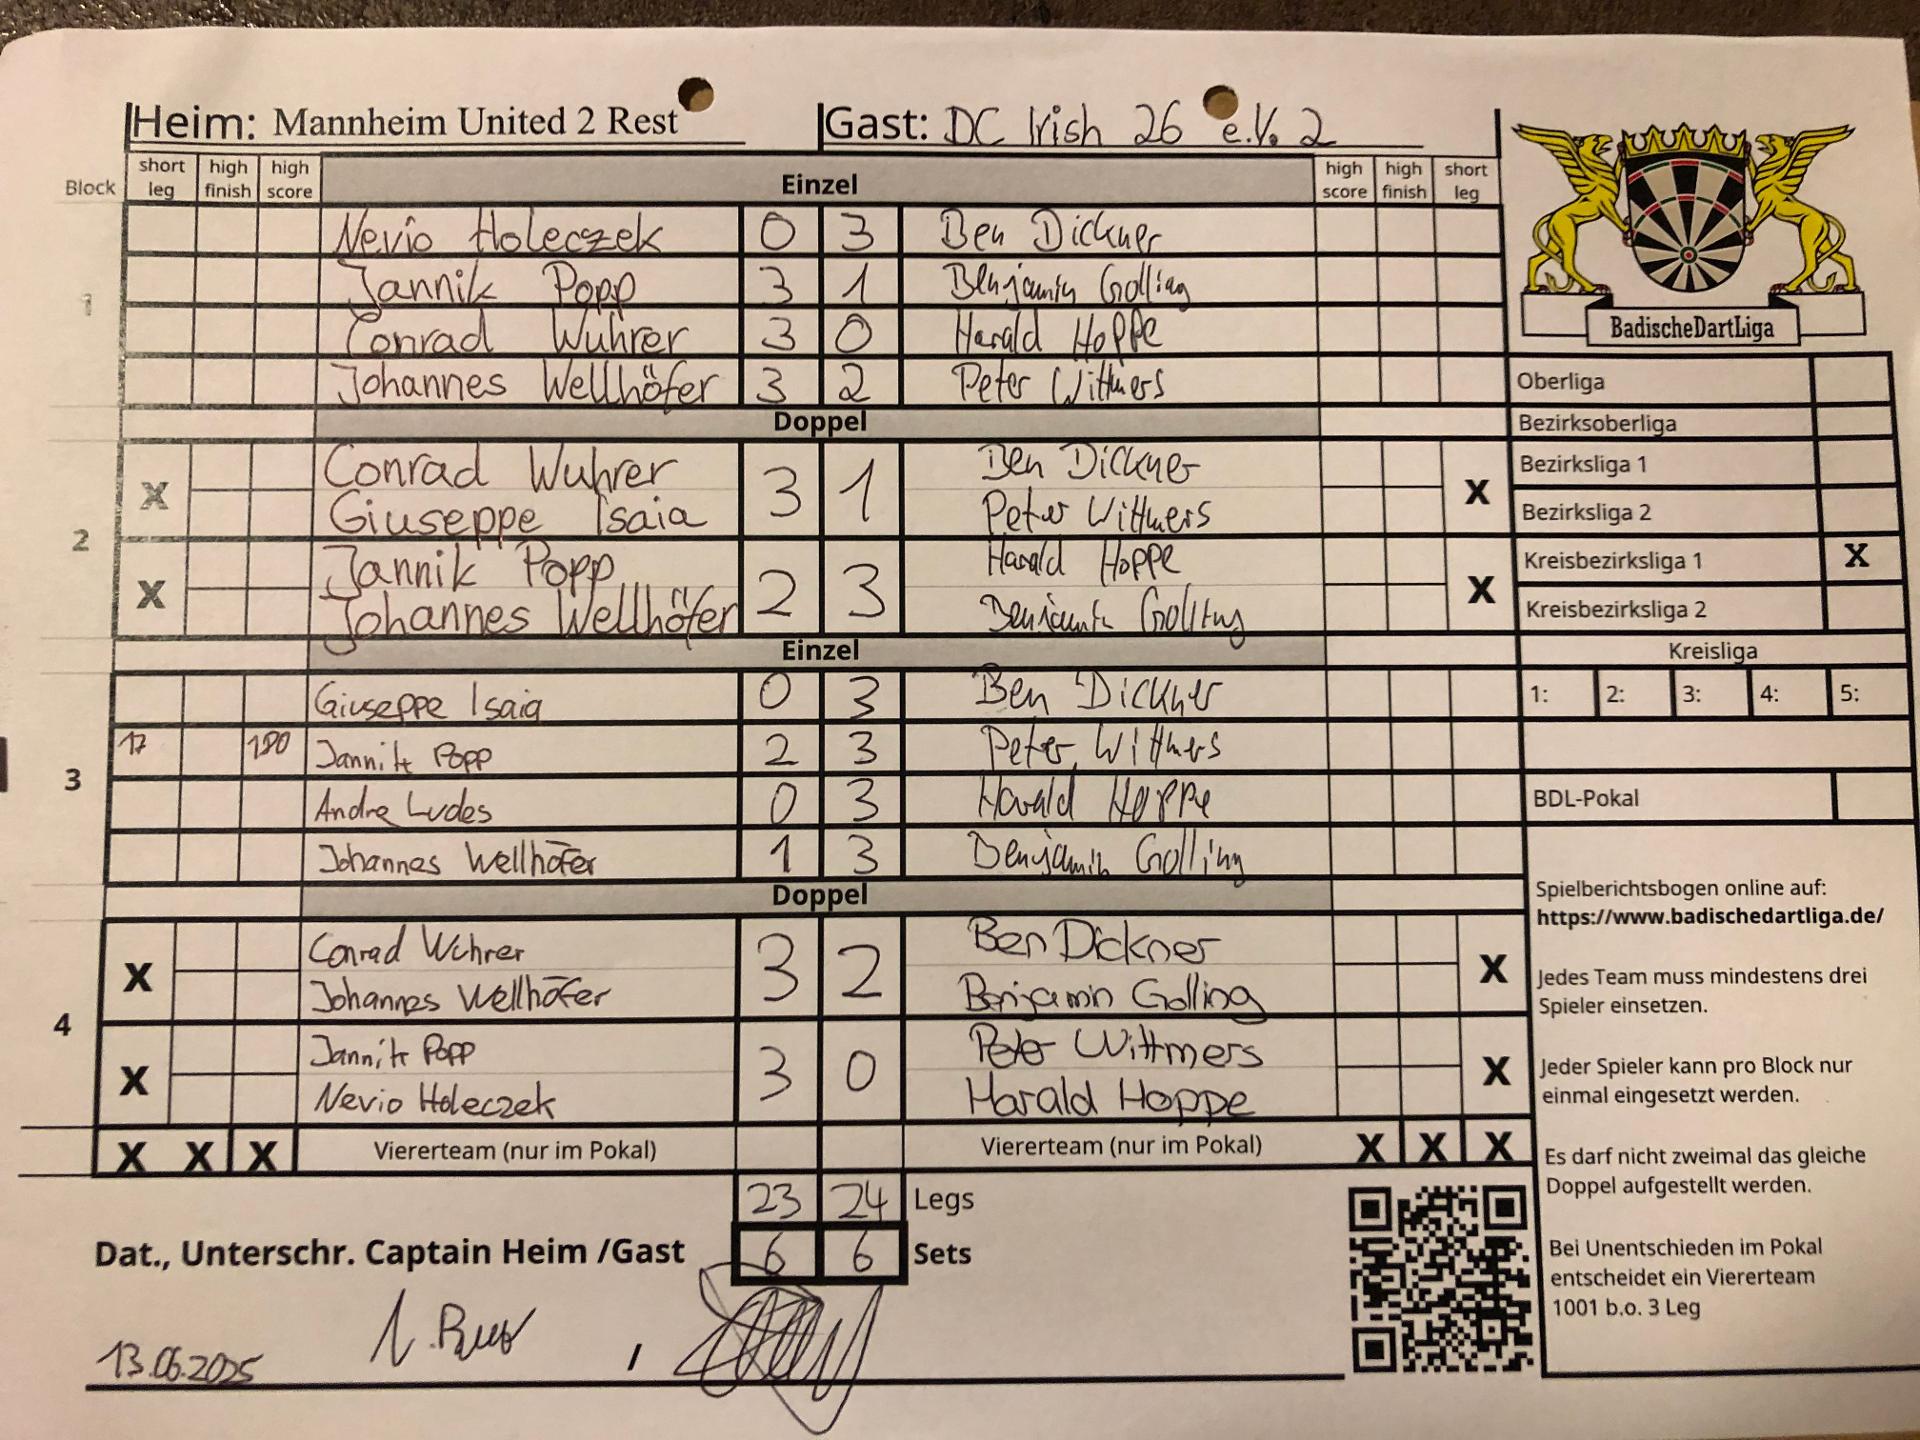 Heim: Mannheim United 2 Rest Gast: DC Irish 26 e.V. 2
Block short leg high finish high score Einzel high score high finish short leg
1
Nevio Holeczek 0 3 Ben Dickner
Jannik Popp 3 1 Benjamin Golling
Conrad Wuhrer 3 0 Harald Hoppe
Johannes Wellhöfer 3 2 Peter Wittmers
Doppel
2
X Conrad Wuhrer 3 1 Ben Dickner X
Giuseppe Isaia Peter Wittmers
X Jannik Popp 2 3 Harald Hoppe X
Johannes Wellhöfer Benjamin Golling
Einzel
3
Giuseppe Isaia 0 3 Ben Dickner
17 180 Jannik Popp 2 3 Peter Wittmers
Andre Ludes 0 3 Harald Hoppe
Johannes Wellhöfer 1 3 Benjamin Golling
Doppel
4
X Conrad Wuhrer 3 2 Ben Dickner X
Johannes Wellhöfer Benjamin Golling
X Jannik Popp 3 0 Peter Wittmers X
Nevio Holeczek Harald Hoppe
X X X Viererteam (nur im Pokal) Viererteam (nur im Pokal) X X X
23 24 Legs
Dat., Unterschr. Captain Heim /Gast 6 6 Sets
13.06.2025 /
BadischeDartLiga
Oberliga
Bezirksoberliga
Bezirksliga 1
Bezirksliga 2
Kreisbezirksliga 1 X
Kreisbezirksliga 2
Kreisliga
1: 2: 3: 4: 5:
BDL-Pokal
Spielberichtsbogen online auf:
https://www.badischedartliga.de/
Jedes Team muss mindestens drei
Spieler einsetzen.
Jeder Spieler kann pro Block nur
einmal eingesetzt werden.
Es darf nicht zweimal das gleiche
Doppel aufgestellt werden.
Bei Unentschieden im Pokal
entscheidet ein Viererteam
1001 b.o. 3 Leg